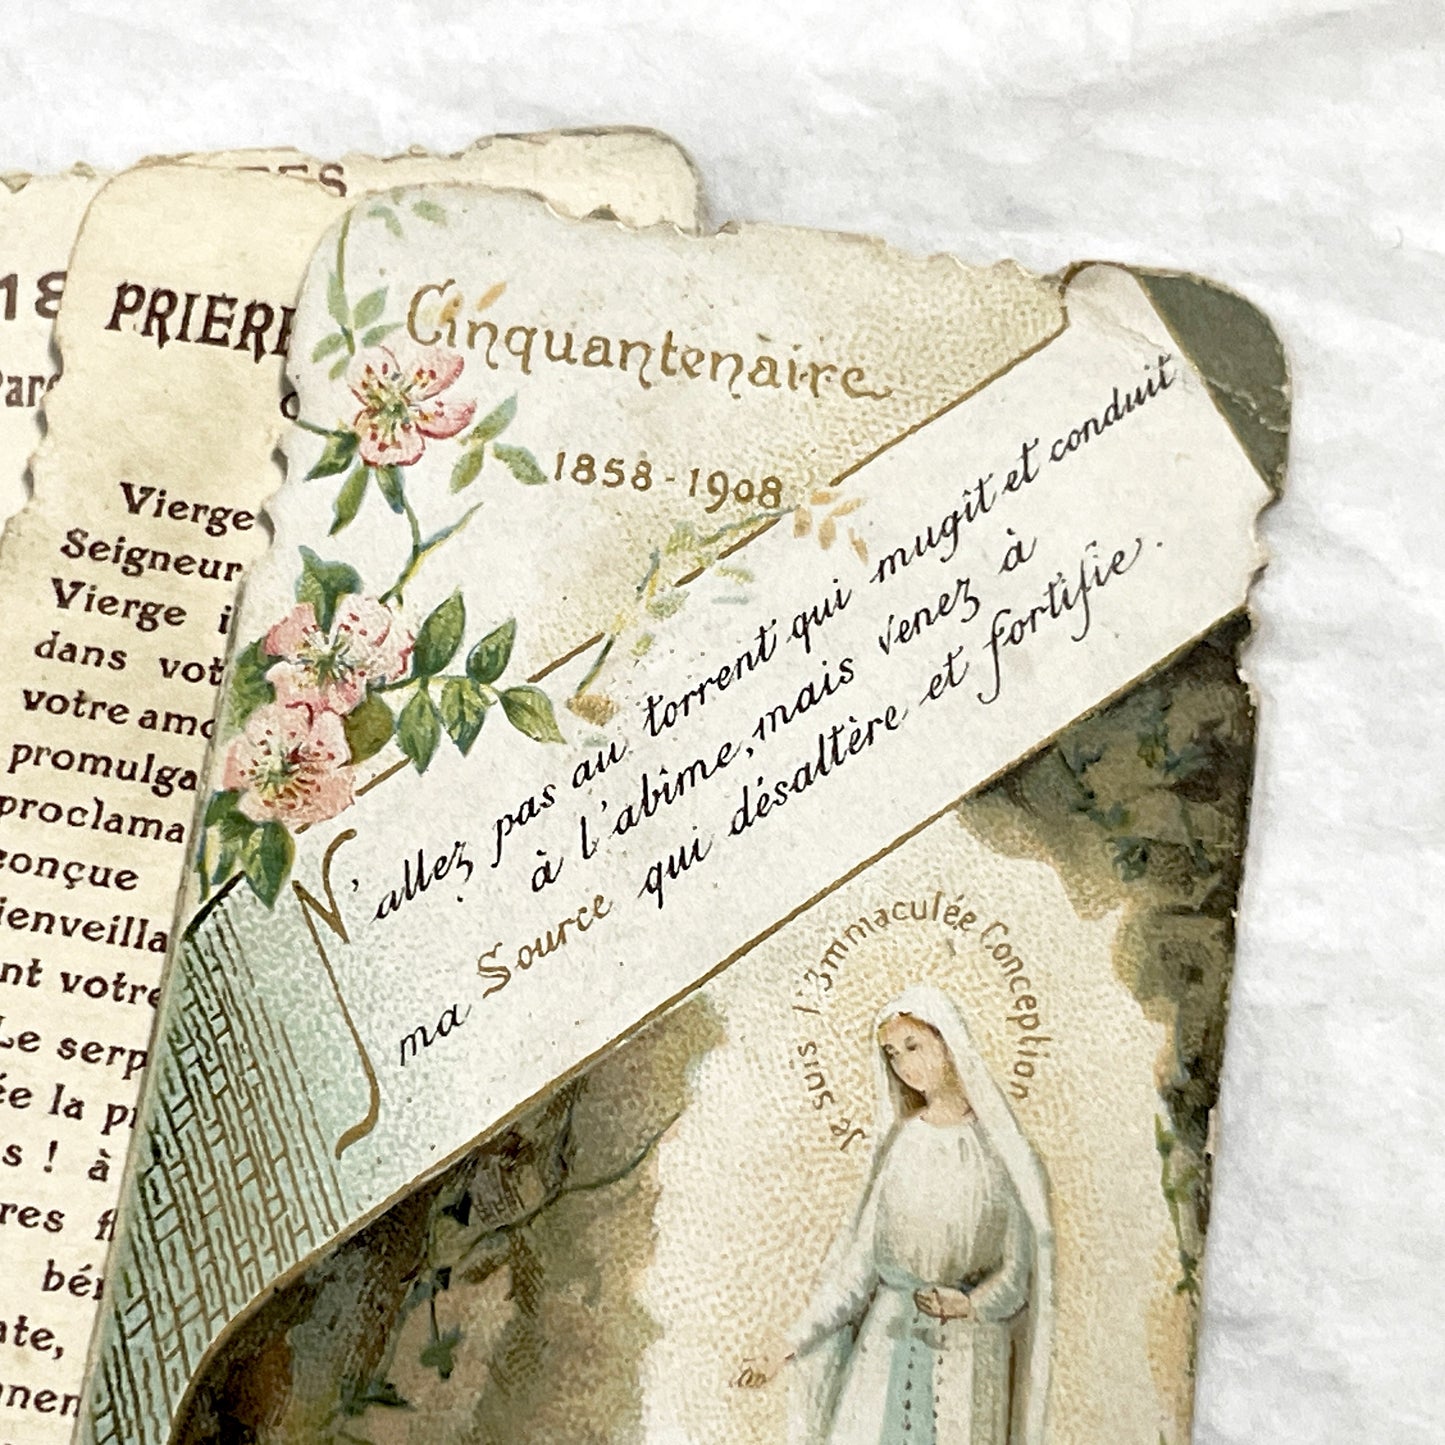 18
PRIÈRE
Vierge
Seigneur
Vierge
dans
votre
promulga
proclama
conçue
ienveilla
nt votre
Le serp
ée la
s ! à
res
ate,
nnen
Cinquantenaire
1858-1908
N'allez pas au torrent qui mugit et conduit
à l'abîme, mais venez à
ma Source qui désaltère et fortifie.
Je suis l'Immaculée Conception